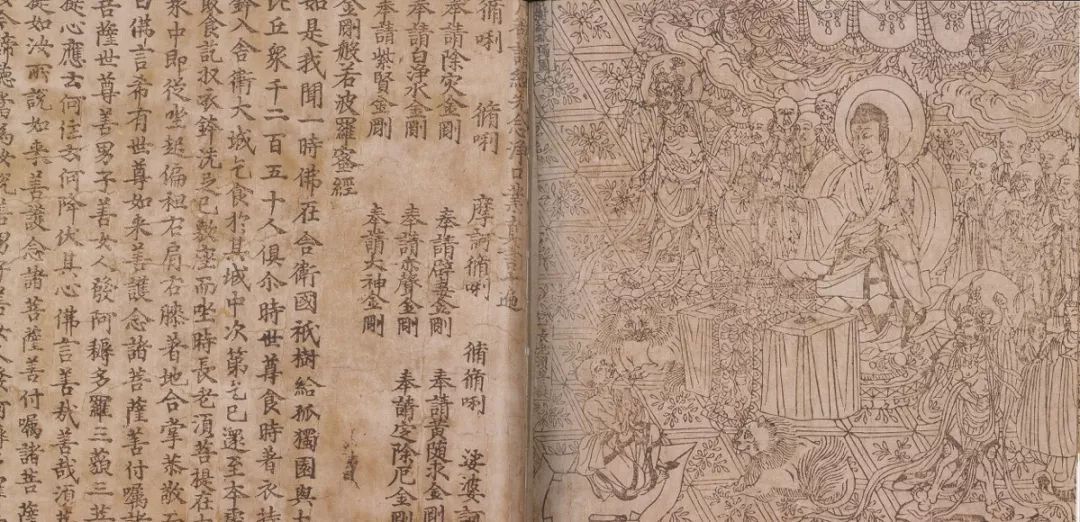 祇樹給孤獨園
長老須菩提
誦經先念淨口業真言一遍
脩唎 脩唎 摩訶脩唎 脩脩唎 娑婆訶
奉請除灾金剛 奉請辟毒金剛 奉請黃隨求金剛
奉請白淨水金剛 奉請赤聲金剛 奉請定除厄金剛
奉請紫賢金剛 奉請大神金剛
金剛般若波羅蜜經
如是我聞一時佛在舍衛國祇樹給孤獨園與大
比丘衆千二百五十人俱尒時世尊食時著衣持
鉢入舍衛大城乞食於其城中次第乞已還至本處
飯食訖収衣鉢洗足已敷座而坐時長老湏菩提在大
衆中即從坐起偏袒右肩右膝著地合掌恭敬而
白佛言希有世尊如來善護念諸菩薩善付囑諸
菩薩世尊善男子善女人發阿耨多羅三藐三菩
提心應云何住云何降伏其心佛言善哉善哉湏菩
提如汝所說如來善護念諸菩薩善付囑諸菩薩